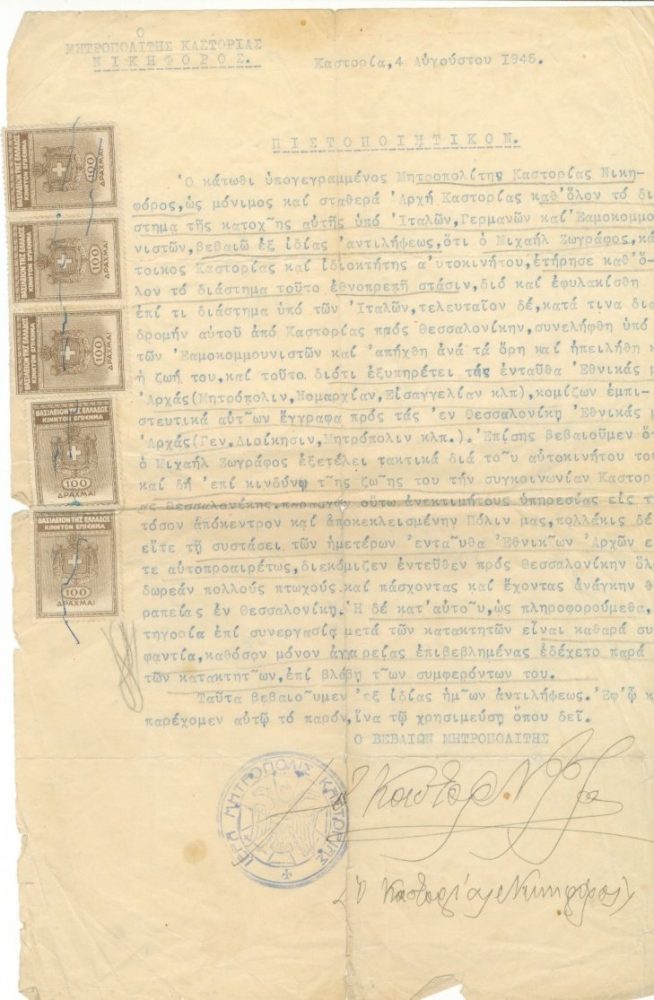 Ὁ
ΜΗΤΡΟΠΟΛΙΤΗΣ ΚΑΣΤΟΡΙΑΣ
ΝΙΚΗΦΟΡΟΣ.
Καστορία,4 Αὐγούστου 1945.
ΠΙΣΤΟΠΟΙΗΤΙΚΟΝ.
Ὁ κάτωθι ὑπογεγραμμένος Μητροπολίτης Καστορίας Νικη-
φόρος,ὡς μόνιμος καί σταθερά Ἀρχή Καστορίας καθ'ὅλον τό δι
στημα τῆς κατοχῆς αὐτῆς ὑπό Ἰταλῶν,Γερμανῶν καί Ἐαμοκομμο
νιστῶν,βεβαιῶ ἐξ ἰδίας ἀντιλήψεως,ὅτι ὁ Μιχαήλ Ζωγράφος,κά
τοικος Καστορίας καί ἰδιοκτήτης αὐτοκινήτου,ἐτήρησε καθ'ὅ-
λον τό διάστημα τοῦτο ἐθνοπρεπῆ στάσιν,διό καί ἐφυλακίσθη
ἐπί τι διάστημα ὑπό τῶν Ἰταλῶν,τελευταῖον δέ,κατά τινα δια
δρομήν αὐτοῦ ἀπό Καστορίας πρός Θεσσαλονίκην,συνελήφθη ὑπό
τῶν Ἐαμοκομμουνιστῶν καί ἀπήχθη ἀνά τά ὄρη καί ἠπειλήθη κ
ἡ ζωή του,καί τοῦτο διότι ἐξυπηρέτει τάς ἐνταῦθα Ἐθνικάς μ
Ἀρχάς(Μητρόπολιν,Νομαρχίαν,Εἰσαγγελίαν κλπ),κομίζων ἐμπι-
στευτικά αὐτῶν ἔγγραφα πρός τάς ἐν Θεσσαλονίκῃ Ἐθνικάς μ
Ἀρχάς(Γεν.Διοίκησιν,Μητρόπολιν κλπ.).Ἐπίσης βεβαιοῦμεν ὅ
ὁ Μιχαήλ Ζωγράφος ἐξετέλει τακτικά διά τοῦ αὐτοκινήτου του
καί δή ἐπί κινδύνῳ τῆς ζωῆς του τήν συγκοινωνίαν Καστορ
ας Θεσσαλονίκης,παρασχών οὕτω ἀνεκτιμήτους ὑπηρεσίας εἰς τ
τόσον ἀπόκεντρον καί ἀποκεκλεισμένην Πόλιν μας,πολλάκις δέ
εἴτε τῇ συστάσει τῶν ἡμετέρων ἐνταῦθα Ἐθνικῶν Ἀρχῶν ε
τε αὐτοπροαιρέτως,διεκόμιζεν ἐντεῦθεν πρός Θεσσαλονίκην ὅλ
δωρεάν πολλούς πτωχούς καί πάσχοντας καί ἔχοντας ἀνάγκην θ
ραπείας ἐν Θεσσαλονίκῃ.Ἡ δέ κατ'αὐτοῦ,ὡς πληροφορούμεθα,
τηγορία ἐπί συνεργασίᾳ μετά τῶν κατακτητῶν εἶναι καθαρά συ
φαντία,καθόσον μόνον ἀγγαρείας ἐπιβεβλημένας ἐδέχετο παρά
τῶν κατακτητῶν,ἐπί βλάβῃ τῶν συμφερόντων του.
Ταῦτα βεβαιοῦμεν ἐξ ἰδίας ἡμῶν ἀντιλήψεως.Ἐφ'ᾧ κ
παρέχομεν αὐτῷ τό παρόν,ἵνα τῷ χρησιμεύσῃ ὅπου δεῖ.
Ὁ ΒΕΒΑΙΩΝ ΜΗΤΡΟΠΟΛΙΤΗΣ
ΙΕΡΑ ΜΗΤΡΟΠΟΛΙΣ ΚΑΣΤΟΡΙΑΣ
(Ὁ Καστορίας Νικηφόρος)
ΒΑΣΙΛΕΙΟΝ ΤΗΣ ΕΛΛΑΔΟΣ
ΚΙΝΗΤΟΝ ΕΠΙΣΗΜΑ
100
ΔΡΑΧΜΑΙ
ΒΑΣΙΛΕΙΟΝ ΤΗΣ ΕΛΛΑΔΟΣ
ΚΙΝΗΤΟΝ ΕΠΙΣΗΜΑ
100
ΔΡΑΧΜΑΙ
ΒΑΣΙΛΕΙΟΝ ΤΗΣ ΕΛΛΑΔΟΣ
ΚΙΝΗΤΟΝ ΕΠΙΣΗΜΑ
100
ΔΡΑΧΜΑΙ
ΒΑΣΙΛΕΙΟΝ ΤΗΣ ΕΛΛΑΔΟΣ
ΚΙΝΗΤΟΝ ΕΠΙΣΗΜΑ
100
ΔΡΑΧΜΑΙ
ΒΑΣΙΛΕΙΟΝ ΤΗΣ ΕΛΛΑΔΟΣ
ΚΙΝΗΤΟΝ ΕΠΙΣΗΜΑ
100
ΔΡΑΧΜΑΙ